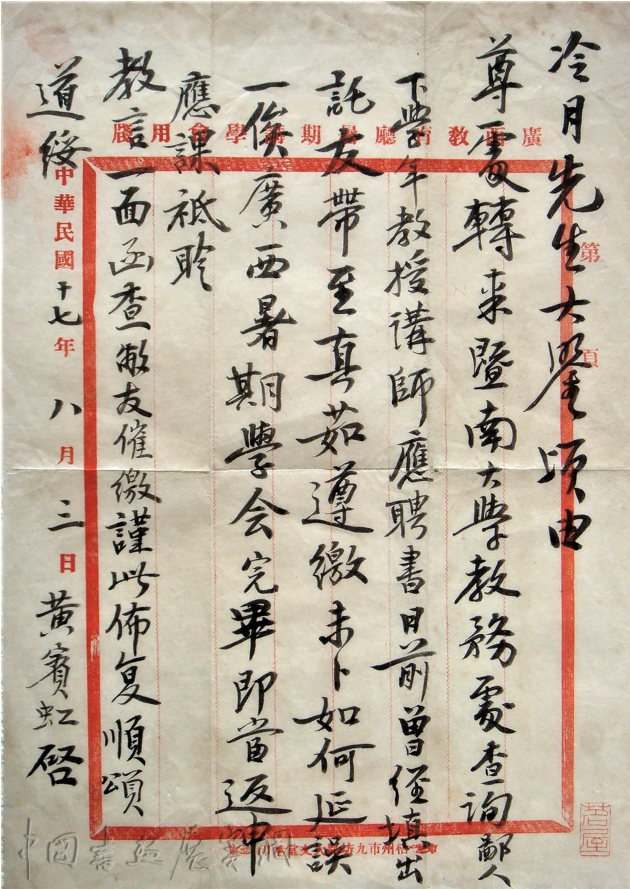 冷月先生大鑒頃由
尊處轉來暨南大學教務處查詢鄙人
下學年教授講師應聘書日前曾經填出
託友帶至真茹遵繳未卜如何延誤
一俟廣西暑期學会完畢即當返申
應課祗聆
教言一面函查敝友催繳謹此佈复順頌
道綏
中華民國十七年八月三日 黃賓虹啓
廣西教育廳暑期講學會用牋
第 頁